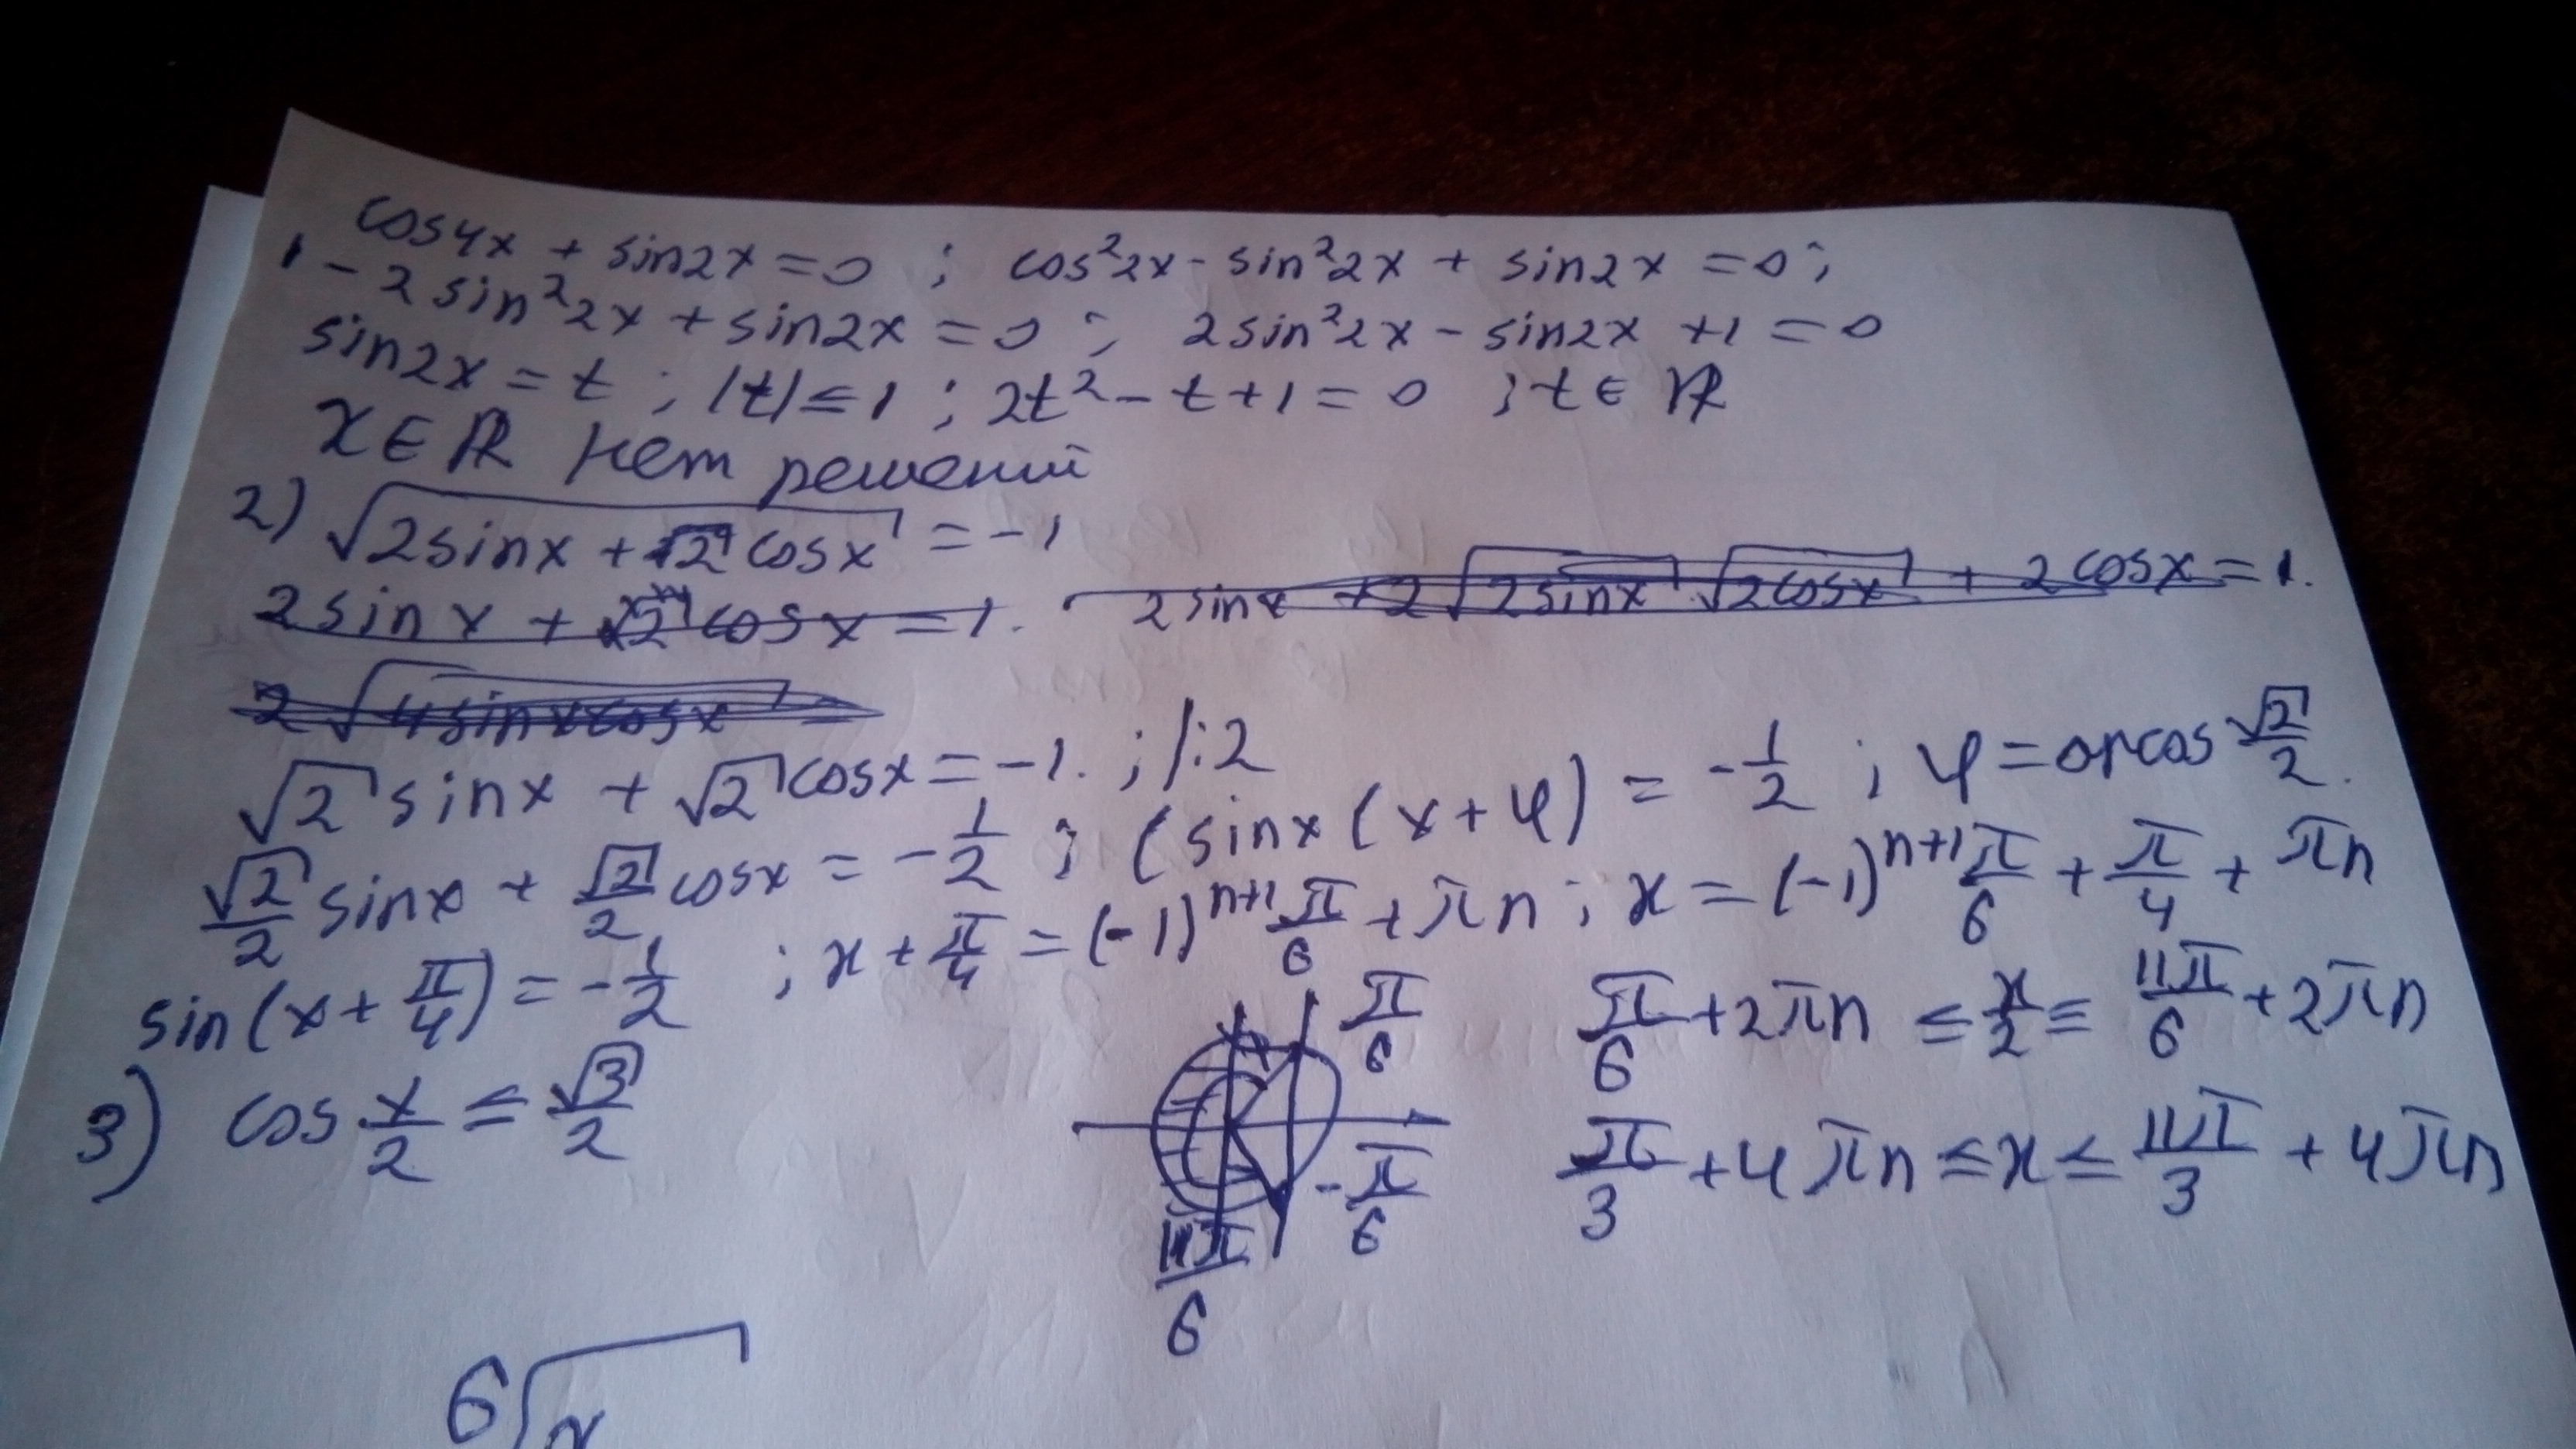 cos4x + sin2x = 0 ; cos²2x - sin²2x + sin2x = 0 ;
1 - 2sin²2x + sin2x = 0 ; 2sin²2x - sin2x + 1 = 0
sin2x = t ; |t| ≤ 1 ; 2t² - t + 1 = 0 ; t ∈ ℝ
x ∈ ℝ нет решений
2) √(2sinx + √2 cosx) = -1
2sinx + √2 cosx = 1. 2sinx + 2√(2sinx) √(2cosx) + 2cosx = 1.
2√(4sinxcosx) =
√2 sinx + √2 cosx = -1. ; |:2
√2/2 sinx + √2/2 cosx = -1/2 ; (sinx (x+φ) = -1/2 ; φ = arcos √2/2.
sin(x + π/4) = -1/2 ; x + π/4 = (-1)ⁿ⁺¹ π/6 + πn ; x = (-1)ⁿ⁺¹ π/6 + π/4 + πn
3) cos x/2 ≤ √3/2 π/6 π/6 + 2πn ≤ x/2 ≤ 11π/6 + 2πn
-π/6 π/3 + 4πn ≤ x ≤ 11π/3 + 4πn
11π/6
6√x